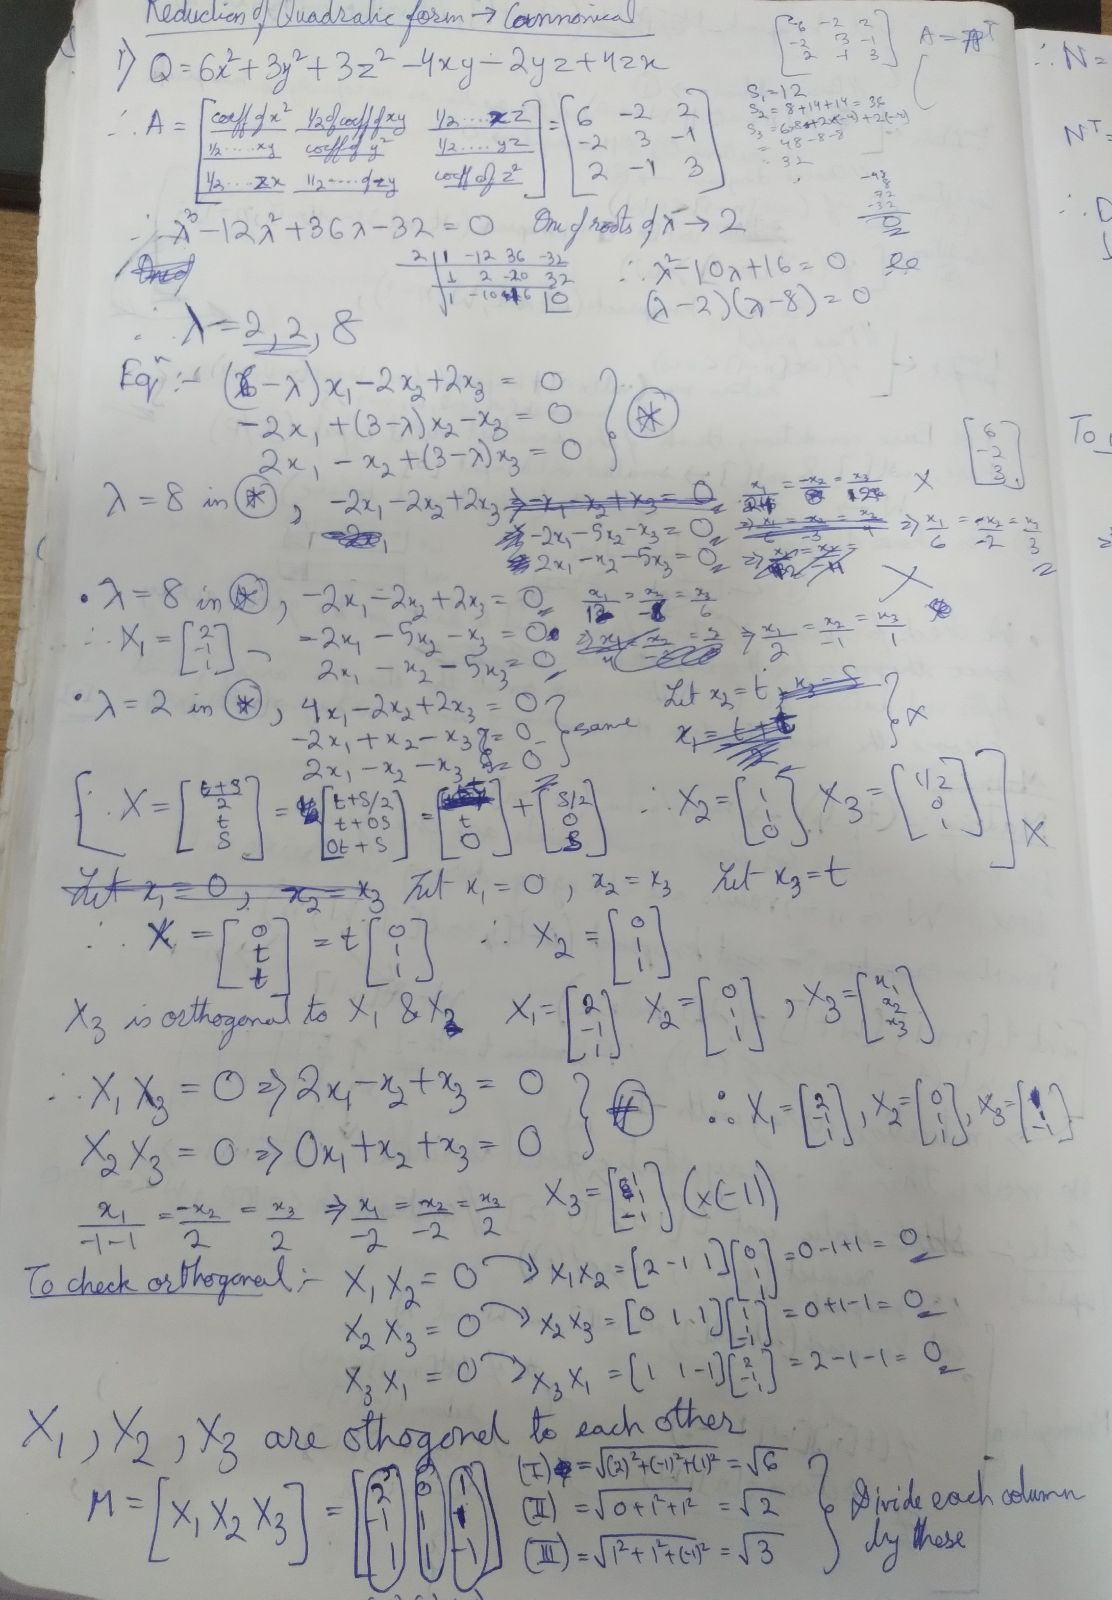 Reduction of Quadratic form → Connonical
1) Q = 6x² + 3y² + 3z² - 4xy - 2yz + 4zx
[-6 -2 2
-2 3 -1
2 -1 3] A = Aᵀ
S₁ = 12
S₂ = 8+14+14 = 36
S₃ = 6·8+2×(-4)+2(-4)
= 48-8-8
= 32
∴ A = [coeff of x² 1/2 of coeff of xy 1/2 .... xz
1/2 ..... xy coeff of y² 1/2 ..... yz
1/2 .... zx 1/2 ..... of zy coeff of z²] = [6 -2 2
-2 3 -1
2 -1 3]
∴ λ³ - 12λ² + 36λ - 32 = 0 One of roots of λ → 2
2 | 1 -12 36 -32
2 -20 32
1 -10 16 | 0
∴ λ² - 10λ + 16 = 0
(λ-2)(λ-8) = 0
∴ λ = 2, 2, 8
Eqⁿ :- (6-λ)x₁ - 2x₂ + 2x₃ = 0
-2x₁ + (3-λ)x₂ - x₃ = 0
2x₁ - x₂ + (3-λ)x₃ = 0 } (*)
[6
-2
3]
λ = 8 in (*), -2x₁ - 2x₂ + 2x₃ ⇒ -x₁ - x₂ + x₃ = 0 X
-2x₁ - 5x₂ - x₃ = 0 ⇒ x₁/6 = -x₂/-2 = x₃/3
2x₁ - x₂ - 5x₃ = 0 X
• λ = 8 in (*), -2x₁ - 2x₂ + 2x₃ = 0 x₁/12 = x₂/-6 = x₃/6
∴ X₁ = [2
-1
1], -2x₁ - 5x₂ - x₃ = 0 ⇒ x₁/2 = x₂/-1 = x₃/1
2x₁ - x₂ - 5x₃ = 0
• λ = 2 in (*), 4x₁ - 2x₂ + 2x₃ = 0
-2x₁ + x₂ - x₃ = 0
2x₁ - x₂ - x₃ = 0 } same
Let x₂ = t, x₃ = s
x₁ = t+t } X
[∴ X = [t+s/2
t
s] = [t+s/2
t+0s
0t+s] = [t
0] + [s/2
0
s] ∴ X₂ = [1
1
0] X₃ = [1/2
0
1]] X
Let x₁ = 0, x₂ = x₃ Let x₁ = 0, x₂ = x₃ Let x₃ = t
∴ X = [0
t
t] = t [0
1
1] ∴ X₂ = [0
1
1]
X₃ is orthogonal to X₁ & X₂ X₁ = [2
-1
1] X₂ = [0
1
1], X₃ = [x₁
x₂
x₃]
∴ X₁X₃ = 0 ⇒ 2x₁ - x₂ + x₃ = 0
X₂X₃ = 0 ⇒ 0x₁ + x₂ + x₃ = 0 } (#)
∴ X₁ = [2
-1
1], X₂ = [0
1
1], X₃ = [1
1
-1]
x₁/-1-1 = -x₂/2 = x₃/2 ⇒ x₁/-2 = x₂/-2 = x₃/2 X₃ = [1
1
-1] (×(-1))
To check orthogonal :- X₁X₂ = 0 → X₁X₂ = [2 -1 1] [0
1
1] = 0-1+1 = 0
X₂X₃ = 0 → X₂X₃ = [0 1 1] [1
1
-1] = 0+1-1 = 0
X₃X₁ = 0 → X₃X₁ = [1 1 -1] [2
-1
1] = 2-1-1 = 0
X₁, X₂, X₃ are othogonal to each other
M = [X₁ X₂ X₃] = [2 0 1
-1 1 1
1 1 -1]
(I) = √(2)²+(-1)²+(1)² = √6
(II) = √0+1²+1² = √2
(III) = √1²+1²+(-1)² = √3 } Divide each column
by these
∴ N =
Nᵀ =
To